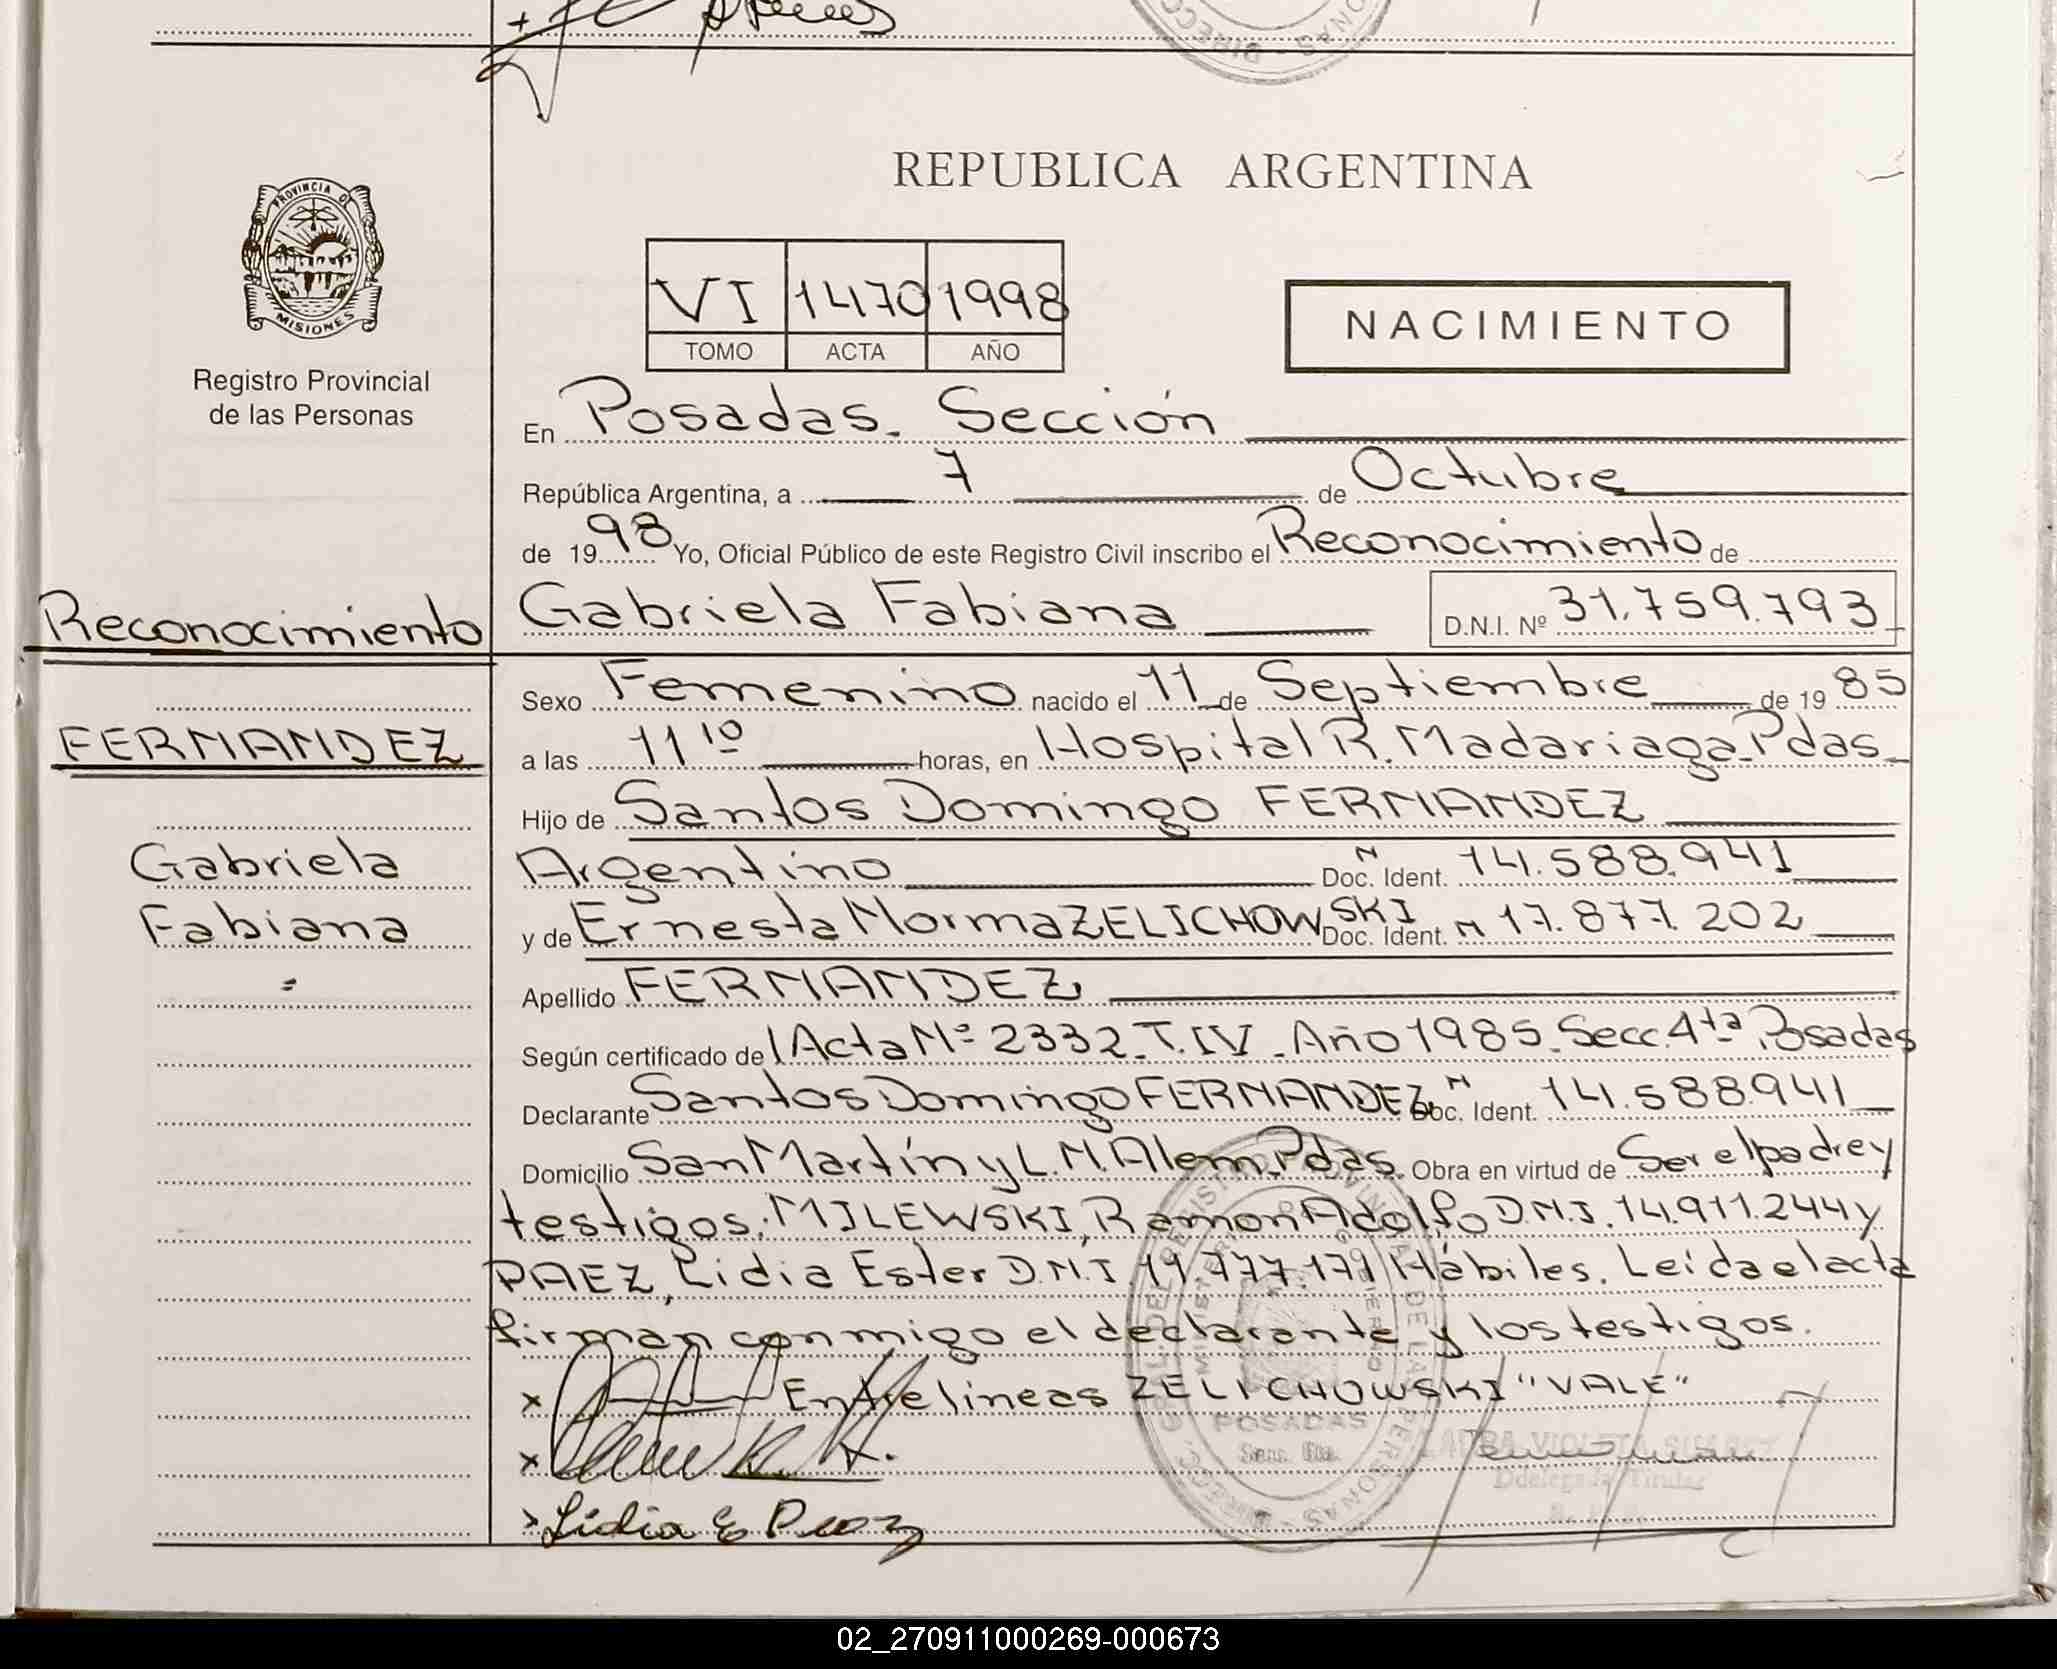 REPUBLICA ARGENTINA
PROVINCIA DE
MISIONES
Registro Provincial
de las Personas
VI 1470 1998
TOMO ACTA AÑO
NACIMIENTO
En Posadas. Sección
República Argentina, a 7 de Octubre
de 1998 Yo, Oficial Público de este Registro Civil inscribo el Reconocimiento de
Reconocimiento
Gabriela Fabiana D.N.I. Nº 31.759.793
Sexo Femenino nacido el 11 de Septiembre de 1985
FERNANDEZ
a las 11 10 horas, en Hospital R. Madariaga. Pdas
Hijo de Santos Domingo FERNANDEZ
Gabriela
Argentino Doc. N Ident. 14.588.941
Fabiana
y de Ernesta Norma ZELICHOWSKI Doc. Ident. N 17.877.202
Apellido FERNANDEZ
Según certificado del Acta Nº 2332. T. IV. Año 1985. Secc. 4ta. Posadas
Declarante Santos Domingo FERNANDEZ N Doc. Ident. 14.588.941
Domicilio San Martín y L. N. Alem. Pdas. Obra en virtud de Ser el padre y
testigos: MILEWSKI, Ramon Adolfo D.N.I. 14.911.244 y
PAEZ, Lidia Ester D.N.I. 19.777.171 Hábiles. Leída el acta
firman conmigo el declarante y los testigos.
x Entre lineas ZELICHOWSKI "VALE"
x
POSADAS
LAURA VIOLETA SUAREZ
Ddelegada Titular
Lidia E Paez
02_270911000269-000673